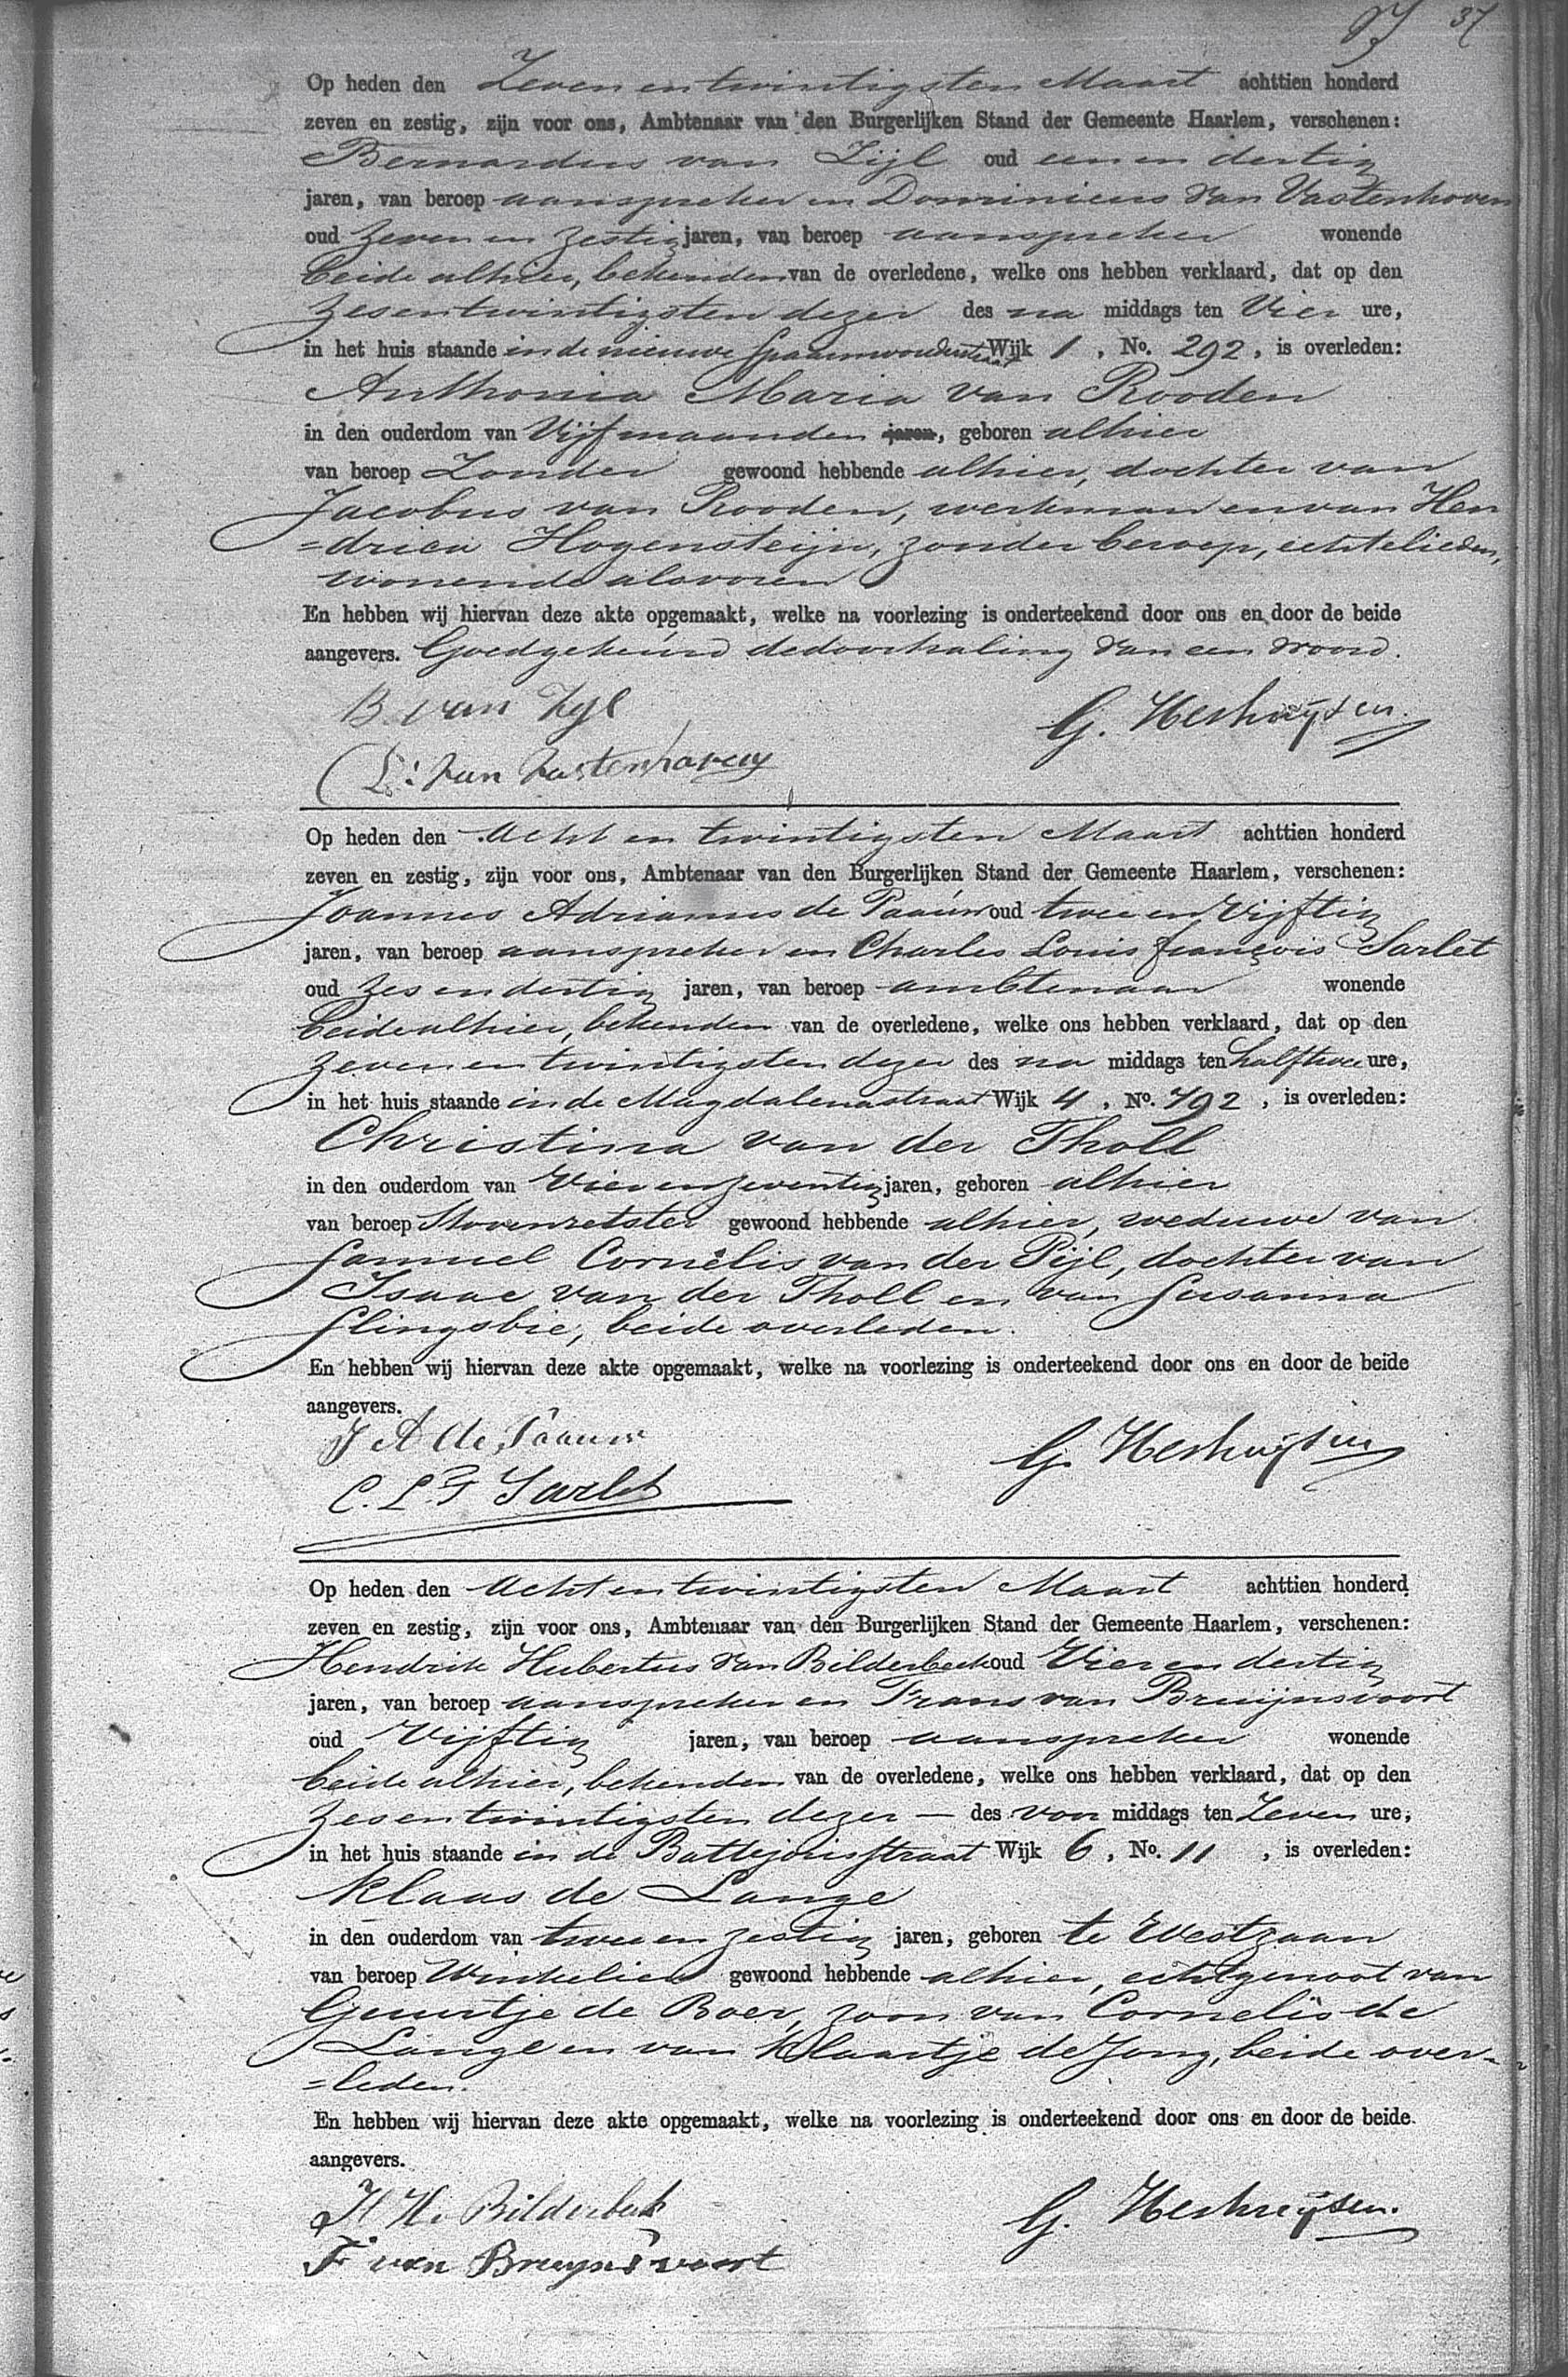 37
Op heden den Zeven en twintigsten Maart achttien honderd
zeven en zestig, zijn voor ons, Ambtenaar van den Burgerlijken Stand der Gemeente Haarlem, verschenen:
Bernardus van Zijl oud een en dertig
jaren, van beroep aanspreker en Dominicus van Vastenhoven
oud Zeven en Zestig jaren, van beroep aanspreker wonende
beide alhier, bekenden van de overledene, welke ons hebben verklaard, dat op den
Zesentwintigsten dezer des na middags ten Vier ure,
in het huis staande in de nieuwe Spaarnwouderstraat Wijk 1, No. 292, is overleden:
Anthonia Maria van Rooden
in den ouderdom van Vijf maanden jaren, geboren alhier
van beroep Zonder gewoond hebbende alhier, dochter van
Jacobus van Rooden, werkman en van Hen
=drica Hogensteijn, zonder beroep, echtelieden,
wonende alsvoren
En hebben wij hiervan deze akte opgemaakt, welke na voorlezing is onderteekend door ons en door de beide
aangevers. Goedgekeurd de doorhaling van een woord.
B van Zyl G. Heshuijsen
van Vastenhoven
Op heden den Acht en twintigsten Maart achttien honderd
zeven en zestig, zijn voor ons, Ambtenaar van den Burgerlijken Stand der Gemeente Haarlem, verschenen:
Joannes Adrianus de Paauw oud twee en Vijftig
jaren, van beroep aanspreker en Charles Louis françois Sarlet
oud Zes en dertig jaren, van beroep ambtenaar wonende
beide alhier, bekenden van de overledene, welke ons hebben verklaard, dat op den
Zeven en twintigsten dezer des na middags ten halftwee ure,
in het huis staande in de Magdalenastraat Wijk 4, No. 792, is overleden:
Christina van der Tholl
in den ouderdom van Vier en zeventig jaren, geboren alhier
van beroep Stovenzetster gewoond hebbende alhier, weduwe van
Samuel Cornelis van der Pijl, dochter van
Isaac van der Tholl en van Susanna
Slingsbie, beide overleden.
En hebben wij hiervan deze akte opgemaakt, welke na voorlezing is onderteekend door ons en door de beide
aangevers.
J A de Paauw G. Heshuijsen
C. L. F Sarlet
Op heden den Acht en twintigsten Maart achttien honderd
zeven en zestig, zijn voor ons, Ambtenaar van den Burgerlijken Stand der Gemeente Haarlem, verschenen:
Hendrik Hubertus van Bilderbeek oud Vier en dertig
jaren, van beroep aanspreker en Frans van Bruijnsvoort
oud Vijftig jaren, van beroep aanspreker wonende
beide alhier, bekenden van de overledene, welke ons hebben verklaard, dat op den
Zesentwintigsten dezer — des voor middags ten Zeven ure,
in het huis staande in de Battejorisstraat Wijk 6, No. 11, is overleden:
Klaas de Lange
in den ouderdom van twee en zestig jaren, geboren te Westzaan
van beroep Winkelier gewoond hebbende alhier, echtgenoot van
Geurtje de Boer, zoon van Cornelis de
Lange en van Klaartje de Jong, beide over-
=leden.
En hebben wij hiervan deze akte opgemaakt, welke na voorlezing is onderteekend door ons en door de beide
aangevers.
H H. Bilderbeek G. Heshuijsen.
F van Bruynsvoort